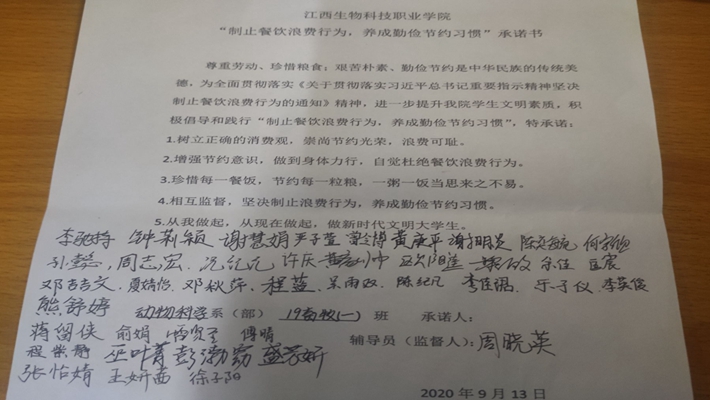 江西生物科技职业学院
“制止餐饮浪费行为，养成勤俭节约习惯”承诺书
尊重劳动、珍惜粮食；艰苦朴素、勤俭节约是中华民族的传统美
德，为全面贯彻落实《关于贯彻落实习近平总书记重要指示精神坚决
制止餐饮浪费行为的通知》精神，进一步提升我院学生文明素质，积
极倡导和践行“制止餐饮浪费行为，养成勤俭节约习惯”，特承诺：
1.树立正确的消费观，崇尚节约光荣，浪费可耻。
2.增强节约意识，做到身体力行，自觉杜绝餐饮浪费行为。
3.珍惜每一餐饭，节约每一粒粮，一粥一饭当思来之不易。
4.相互监督，坚决制止浪费行为，养成勤俭节约习惯。
5.从我做起，从现在做起，做新时代文明大学生。
钟莉颖 谢慧娟 黄庚平
周志宏 许庆
邓秋萍 程蓝 李英俊
熊舒婷 动物科学系（部） 19畜牧(一) 班 承诺人：
蒋留侠 俞娟 傅晴 辅导员（监督人）：周晓英
程紫静 巫叶菁 彭渤窈 盛芳妍
张怡婧 王妍茜 徐子阳
2020 年 9 月 13 日